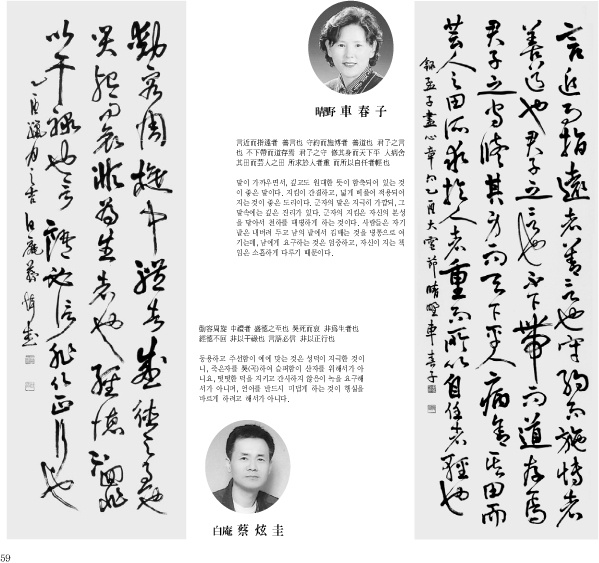 晴野 車春子
言近而指遠者 善言也 守約而施博者 善道也 君子之言
也 不下帶而道存焉 君子之守 修其身而天下平 人病舍
其田而芸人之田 所求於人者重 而所以自任者輕也
말이 가까우면서, 깊고도 원대한 뜻이 함축되어 있는 것
이 좋은 말이다. 지킴이 간결하고, 넓게 베풂이 적용되어
지는 것이 좋은 도리이다. 군자의 말은 지극히 가깝되, 그
말속에는 깊은 진리가 있다. 군자의 지킴은 자신의 본성
을 닦아서 천하를 태평하게 하는 것이다. 사람들은 자기
밭은 내버려 두고 남의 밭에서 김매는 것을 병통으로 여
기는데, 남에게 요구하는 것은 엄중하고, 자신이 지는 책
임은 소홀하게 다루기 때문이다.
言近而指遠者善言也守約而施博者
善道也君子之言也不下帶而道存焉
君子之守脩其身而天下平人病舍其田而
芸人之田所求於人者重而所以自任者輕也
錄孟子盡心章句乙酉大雪節 晴墅車春子
動容周旋 中禮者 盛德之至也 哭死而哀 非爲生者也
經德不回 非以干祿也 言語必信 非以正行也
동용하고 주선함이 예에 맞는 것은 성덕이 지극한 것이
니, 죽은자를 哭(곡)하여 슬퍼함이 산자를 위해서가 아
니요, 떳떳한 덕을 지키고 간사하지 않음이 녹을 요구해
서가 아니며, 언어를 반드시 미덥게 하는 것이 행실을
바르게 하려고 해서가 아니다.
白庵 蔡炫圭
動容周旋中禮者盛德之至也
哭死而哀非爲生者也經德不回非
以干祿也言語必信非以正行也
59